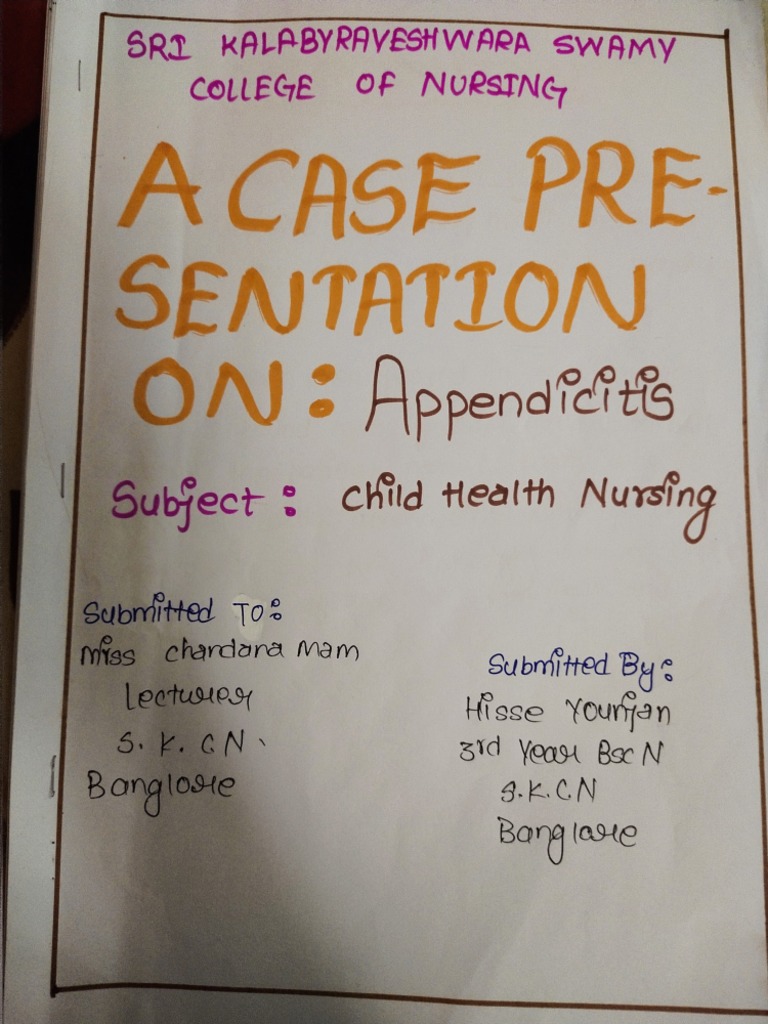 SRI KALABYRAVESHWARA SWAMY
COLLEGE OF NURSING
A CASE PRE-
SENTATION
ON: Appendicitis
Subject: Child Health Nursing
Submitted To:
Miss Chandana Mam
Lecturer
S. K. C N.
Banglore
Submitted By:
Hisse Younjan
3rd Year Bsc N
S.K.C.N
Banglore